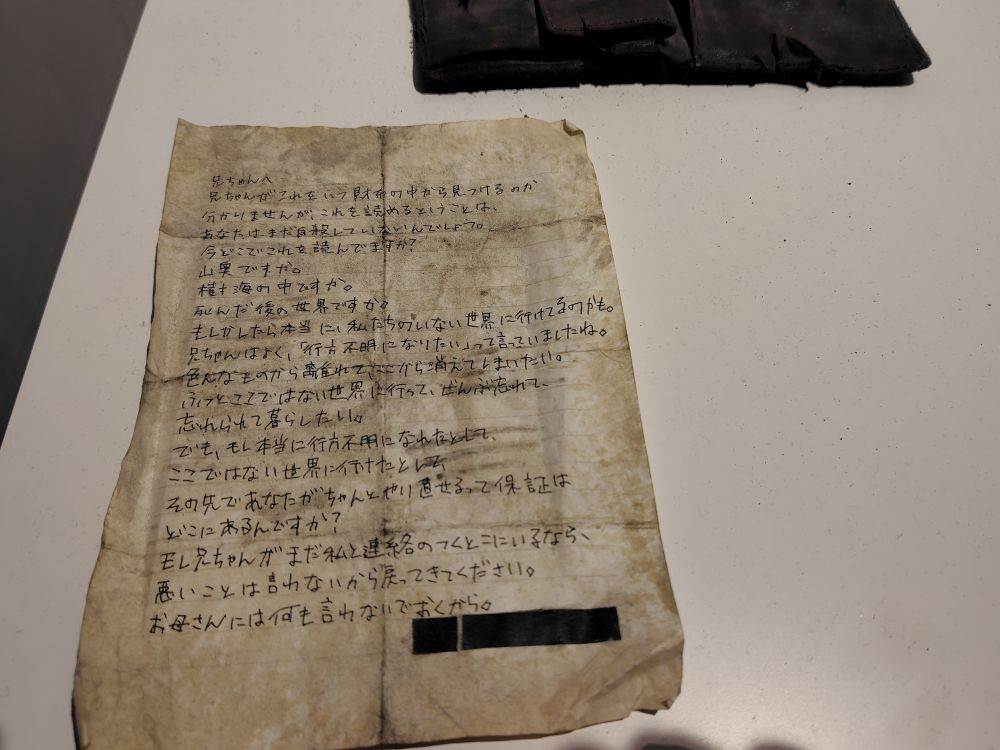 兄ちゃんへ
兄ちゃんがこれをいつ財布の中から見つけるのか
分かりませんが、これを読めるということは、
あなたはまだ自殺していないんでしょう。
今どこでこれを読んでますか?
山奥ですか。
樹海の中ですか。
死んだ後の世界ですか。
もしかしたら本当に、私たちのいない世界に行けてるのかも。
兄ちゃんはよく、「行方不明になりたい」って言っていましたね。
色んなものから離れて、ここから消えてしまいたい。
ふっとここではない世界に行って、ぜんぶ忘れて、
忘れられて暮らしたい。
でも、もし本当に行方不明になれたとして、
ここではない世界に行けたとして、
その先であなたがちゃんとやり直せるって保証は
どこにあるんですか?
もし兄ちゃんがまだ私と連絡のつくとこにいるなら、
悪いことは言わないから戻ってきてください。
お母さんには何も言わないでおくから。